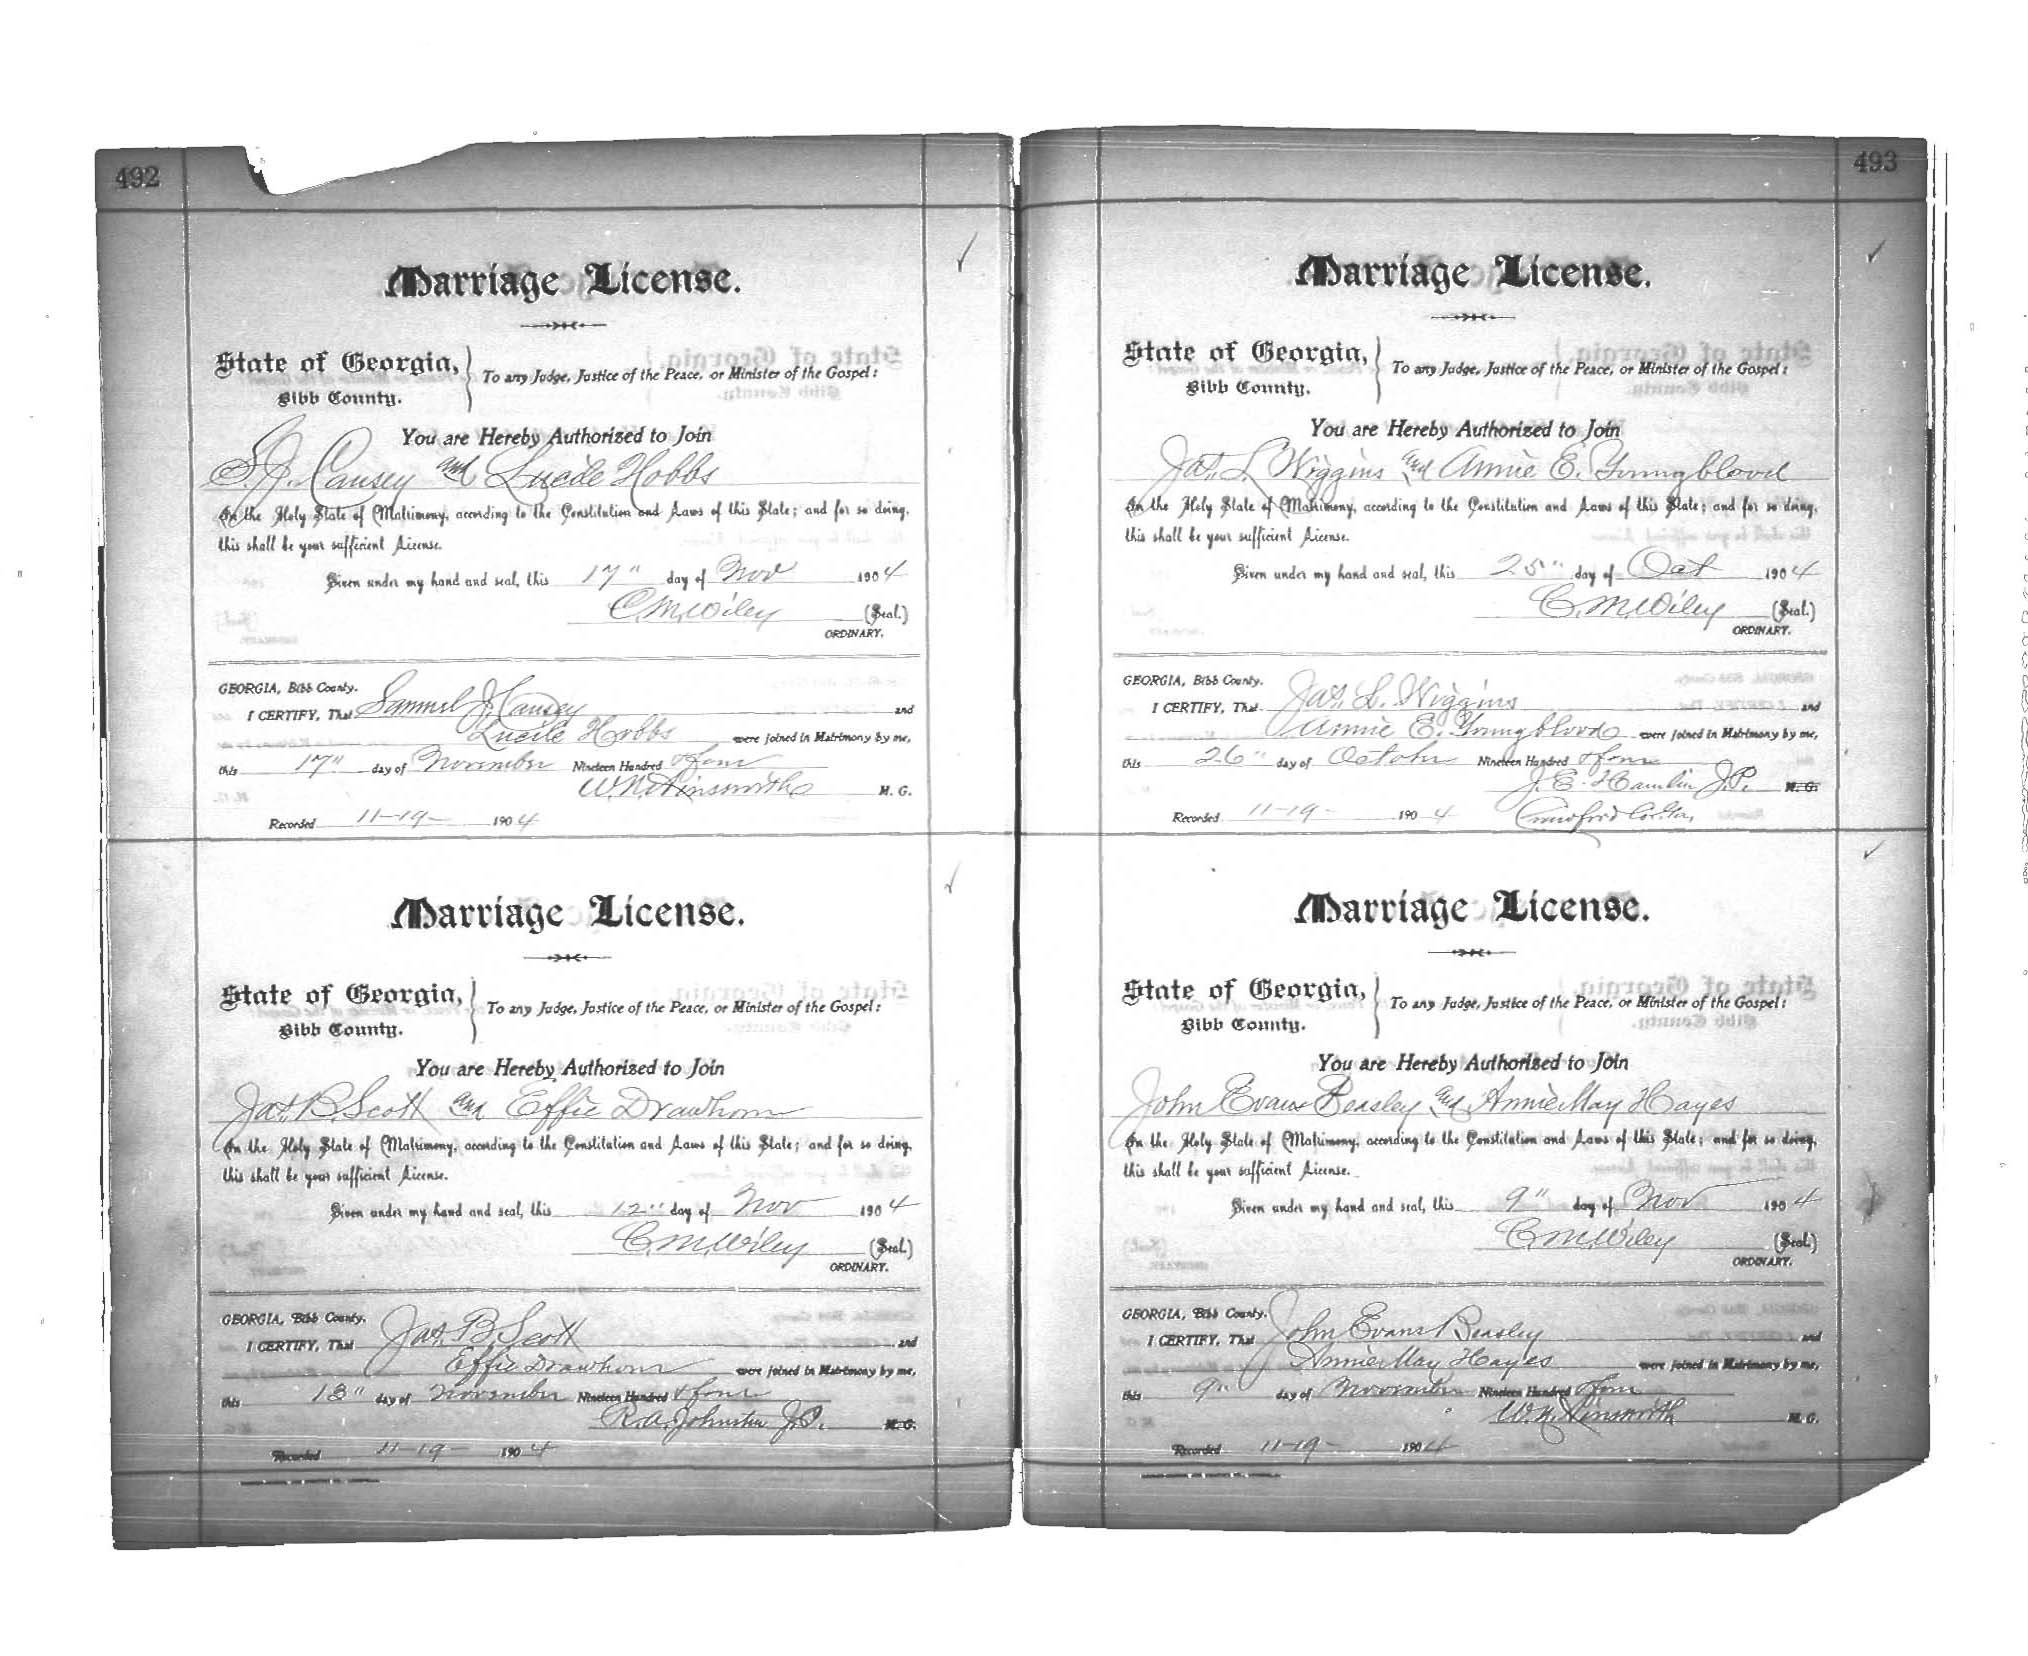 492
Marriage License.
State of Georgia,
Bibb County.
To any Judge, Justice of the Peace, or Minister of the Gospel:
You are Hereby Authorized to Join
S. J. Causey and Lucile Hobbs
In the Holy State of Matrimony, according to the Constitution and Laws of this State; and for so doing,
this shall be your sufficient License.
Given under my hand and seal, this 17" day of Nov 1904
C. M. Wiley (Seal.)
ORDINARY.
GEORGIA, Bibb County.
I CERTIFY, That Samuel J. Causey and
Lucile Hobbs were joined in Matrimony by me,
this 17" day of November Nineteen Hundred & four
W. N. Ainsworth M. G.
Recorded 11-19- 1904
Marriage License.
State of Georgia,
Bibb County.
To any Judge, Justice of the Peace, or Minister of the Gospel:
You are Hereby Authorized to Join
Jas. B. Scott and Effie Drawhorn
In the Holy State of Matrimony, according to the Constitution and Laws of this State; and for so doing,
this shall be your sufficient License.
Given under my hand and seal, this 12" day of Nov 1904
C. M. Wiley (Seal.)
ORDINARY.
GEORGIA, Bibb County.
I CERTIFY, That Jas. B. Scott and
Effie Drawhorn were joined in Matrimony by me,
this 13" day of November Nineteen Hundred & four
R. A. Johnston J. P. M. G.
Recorded 11-19- 1904
493
Marriage License.
State of Georgia,
Bibb County.
To any Judge, Justice of the Peace, or Minister of the Gospel:
You are Hereby Authorized to Join
Jas. L. Wiggins and Annie E. Youngblood
In the Holy State of Matrimony, according to the Constitution and Laws of this State; and for so doing,
this shall be your sufficient License.
Given under my hand and seal, this 25" day of Oct 1904
C. M. Wiley (Seal.)
ORDINARY.
GEORGIA, Bibb County.
I CERTIFY, That Jas. L. Wiggins and
Annie E. Youngblood were joined in Matrimony by me,
this 26" day of October Nineteen Hundred & four
J. E. Hamlin J. P. M. G.
Recorded 11-19- 1904 Crawford Co. Ga,
Marriage License.
State of Georgia,
Bibb County.
To any Judge, Justice of the Peace, or Minister of the Gospel:
You are Hereby Authorized to Join
John Evans Beasley and Annie May Hayes
In the Holy State of Matrimony, according to the Constitution and Laws of this State; and for so doing,
this shall be your sufficient License.
Given under my hand and seal, this 9" day of Nov 1904
C. M. Wiley (Seal.)
ORDINARY.
GEORGIA, Bibb County.
I CERTIFY, That John Evans Beasley and
Annie May Hayes were joined in Matrimony by me,
this 9" day of November Nineteen Hundred & four
W. N. Ainsworth M. G.
Recorded 11-19- 1904